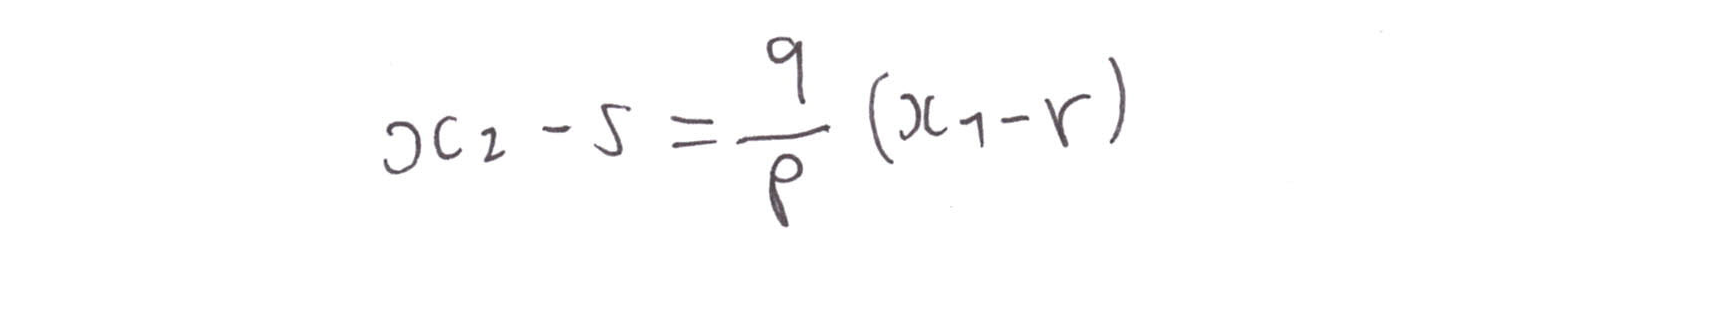 $x_2 - s = \frac{q}{p} (x_1 - r)$